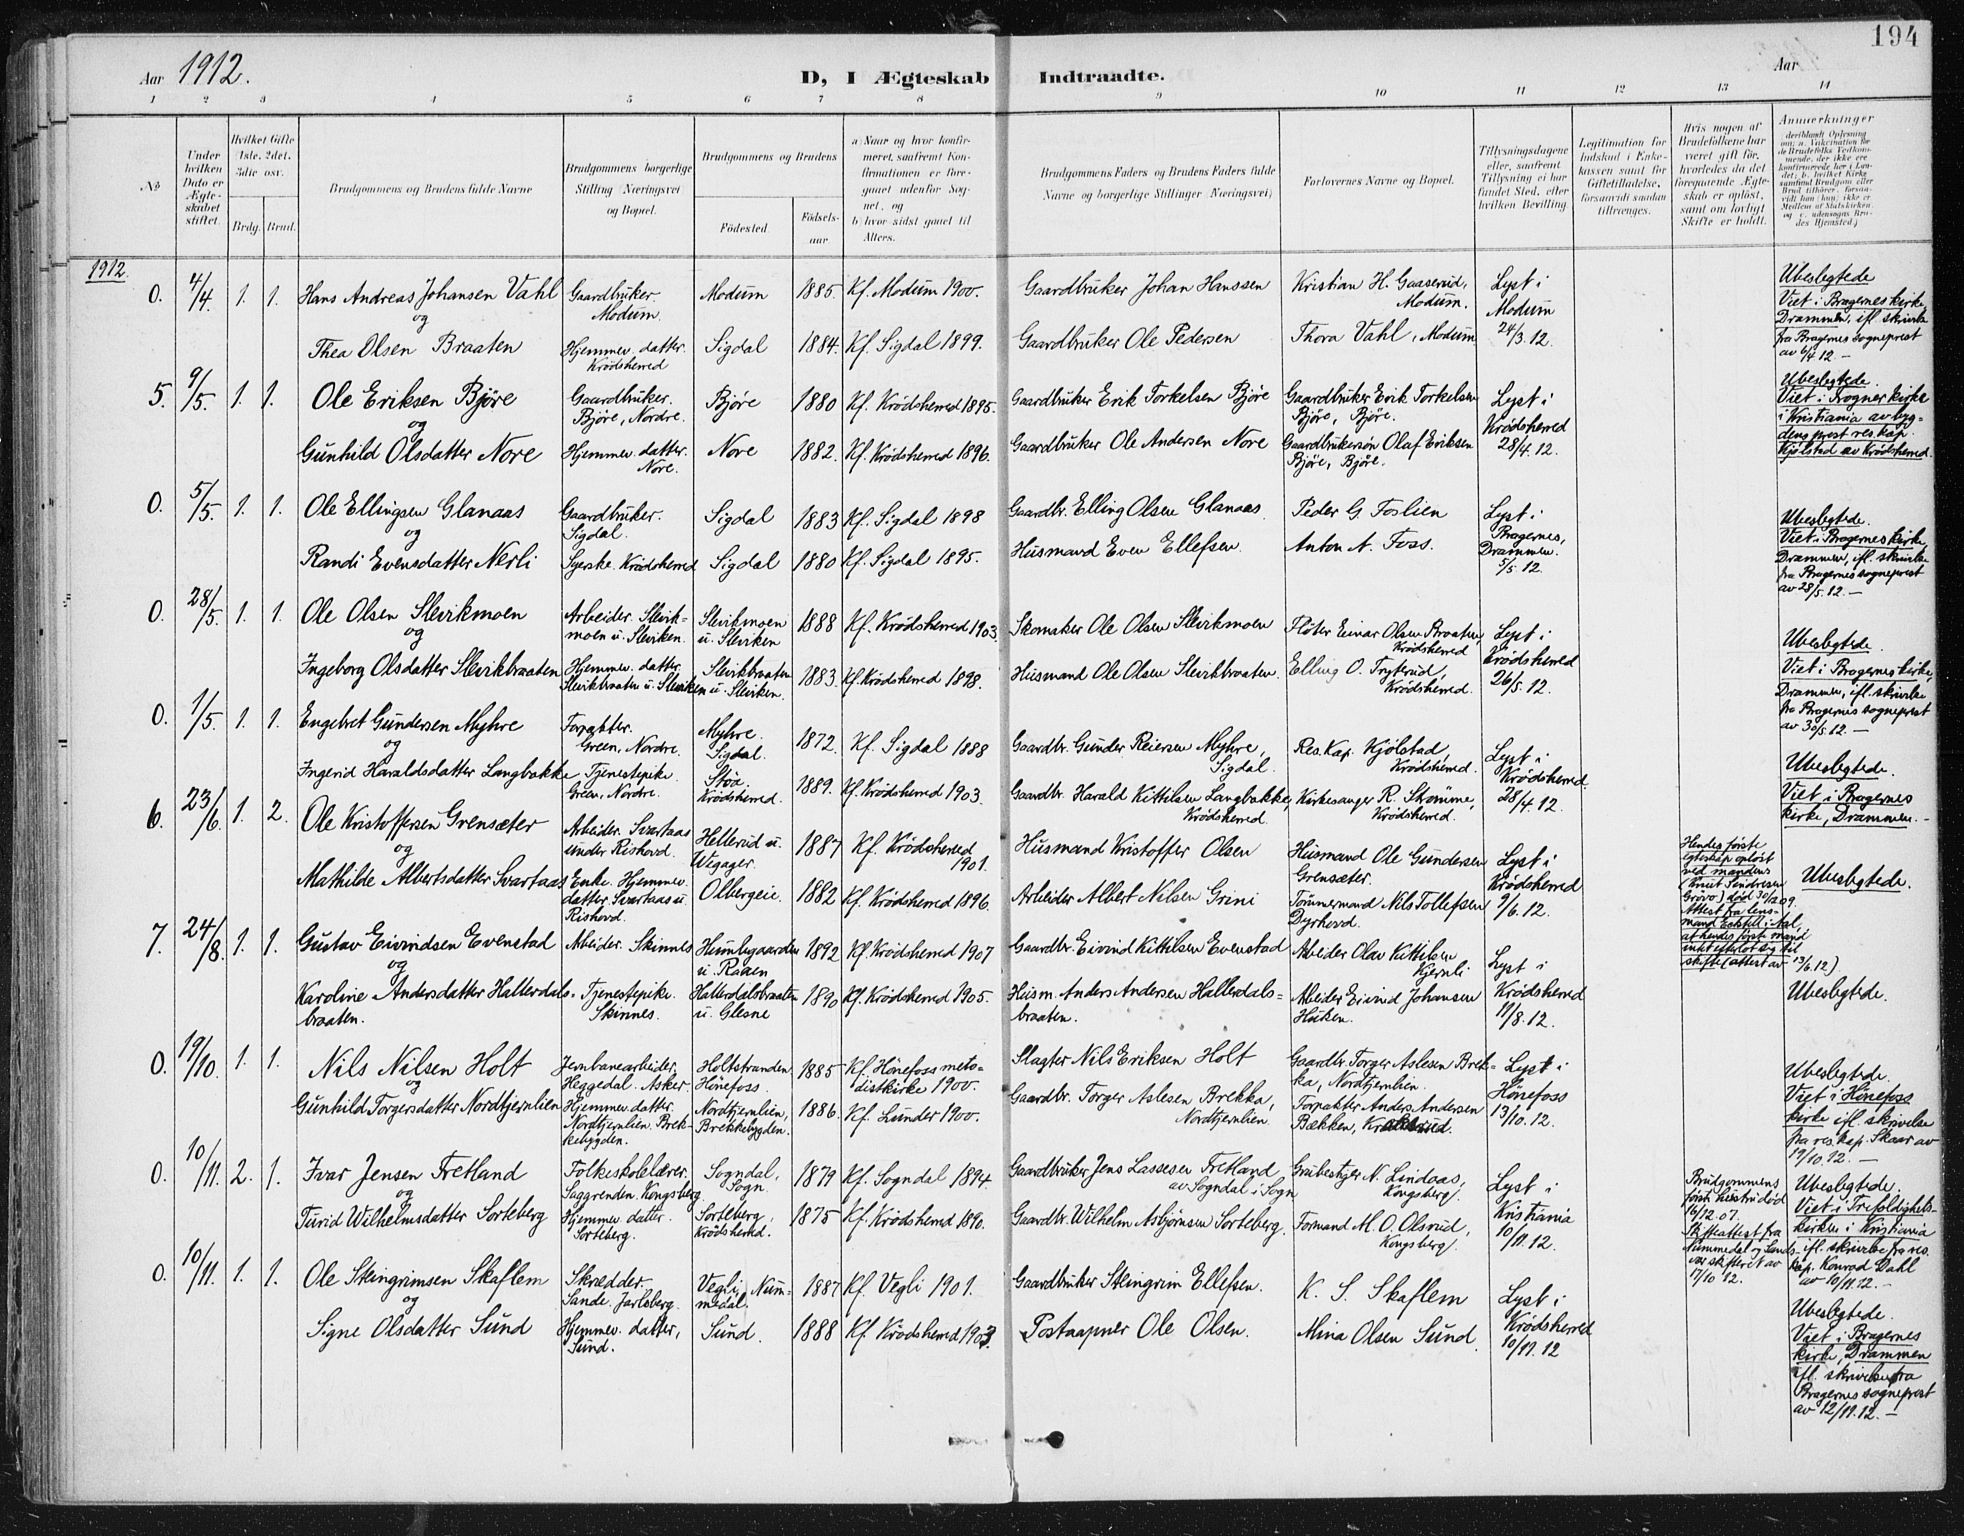 194
Aar 1912.
D, I Ægteskab Indtraadte.
Aar
1 2 3 4 5 6 7 8 9 10 11 12 13 14
No
Under hvilken Dato er Ægteskabet stiftet.
Hvilket Gifte 1ste, 2det, 3die osv.
Brdg. Brud.
Brudgommens og Brudens fulde Navne
Brudgommens borgerlige Stilling (Næringsvei) og Bopæl.
Brudgommens og Brudens
Födested.
Födsels-aar
a) Naar og hvor konfirmeret, saafremt Konfirmationen er foregaaet udenfor Sognet, og
b) hvor sidst gaaet til Alters.
Brudgommens Faders og Brudens Faders fulde Navne og borgerlige Stillinger (Næringsvei)
Forlovernes Navne og Bopæl.
Tillysningsdagene eller, saafremt Tillysning ei har fundet Sted, efter hvilken Bevilling
Legitimation for Indskud i Enkekassen samt for Giftetilladelse, forsaavidt saadan tiltrænges.
Hvis nogen af Brudefolkene har været gift før, hvorledes da det foregaaende Ægteskab er opløst, samt om lovligt Skifte er holdt.
Anmerkninger
1912.
0. 4/4 1. 1. Hans Andreas Johansen Vahl Gaardbruker. Modum. Modum 1885. Kf. Modum 1900. Gaardbruker Johan Hanssen Kristian H. Gaaserud, Modum. Lyst i Modum 24/3.12.
og
Thea Olsen Braaten Hjemmev. datter. Krödsherred Sigdal 1884. Kf. Sigdal 1899. Gaardbruker Ole Pedersen Thora Vahl, Modum.
Ubeslegtede Viet i Bragernes kirke, Drammen, ifl skrivelse fra Bragernes sogneprest av 6/4 12. —
5. 9/5. 1. 1. Ole Eriksen Björe Gaardbruker. Björe, Nordre. Björe 1880 Kf. Krödsherred 1895. Gaardbruker Erik Torkelsen Björe Gaardbruker Erik Torkelsen Björe, Björe. Lyst i Krödsherred 28/4.12.
og
Gunhild Olsdatter Nore Hjemmev. datter. Nore. Nore 1882. Kf. Krödsherred 1896. Gaardbruker Ole Andersen Nore Gaardbrukersön Olaf Eriksen Björe, Björe.
Ubeslegtede. Viet i Frogner kirke i Kristiania av bygdens prest res. kap. Kjölstad av Krödsherred.
0. 5/5. 1. 1. Ole Ellingsen Glanaas Gaardbruker. Sigdal. Sigdal 1883 Kf. Sigdal 1898 Gaardbr. Elling Olsen Glanaas Peder G. Foslien Lyst i Bragernes, Drammen. 5/5.12.
og
Randi Evensdatter Nerli Syerske. Krödsherred Sigdal 1880 Kf. Sigdal 1895. Husmand Even Ellefsen. Anton A. Foss.
Ubeslegtede. Viet i Bragernes kirke, Drammen, ifl. skrivelse fra Bragernes sogneprest av 28/5.12. —
0. 28/5. 1. 1. Ole Olsen Slevikmoen Arbeider. Slevikmoen u. Sleviken. Slevikmoen u. Sleviken 1888 Kf. Krödsherred 1903. Skomaker Ole Olsen Slevikmoen Flöter Einar Olsen Braaten, Krödsherred Lyst i Krödsherred 26/5.12.
og
Ingeborg Olsdatter Slevikbraaten Hjemmev. datter. Slevikbraaten u. Sleviken Slevikbraaten u. Sleviken. 1883. Kf. Krödsherred 1898. Husmand Ole Olsen Slevikbraaten. Elling O. Fryterud, Krödsherred.
Ubeslegtede. Viet i Bragernes kirke, Drammen, ifl. skrivelse fra Bragernes sogneprest av 30/5.12. —
0. 1/5. 1. 1. Engebret Gundersen Myhre Forpakter. Green, Nordre. Myhre. Sigdal. 1872. Kf. Sigdal 1888 Gaardbr. Gunder Reiersen Myhre, Sigdal. Res. Kap. Kjölstad, Krödsherred. Lyst i Krödsherred. 28/4.12.
og
Ingerid Haraldsdatter Langbakke Tjenestepike. Green, Nordre. Stöa Krödsherred. 1889. Kf. Krödsherred 1903. Gaardbr. Harald Kittilsen Langbakke, Krödsherred. Kirkesanger R. Strömme, Krödsherred.
Ubeslegtede. Viet i Bragernes kirke, Drammen. —
6. 23/6. 1. 2. Ole Kristoffersen Grensæter Arbeider. Svartaas under Rishovd. Hellerud u. Wegager. 1887 Kf. Krödsherred 1901. Husmand Kristoffer Olsen Husmand Ole Gundersen Grensæter. Lyst i Krödsherred 9/6.12.
og
Mathilde Albertsdatter Svartaas Enke. Hjemmev. datter. Svartaas u. Rishovd. Olbergeie. 1882 Kf. Krödsherred 1896. Arbeider Albert Nilsen Grini Tömmermand Nils Tollefsen Dyrhovd.
Hendes förste egteskap oplöst ved mandens (Knut Sindresen Grövo) död 30/12 09. Attest fra lensmand at hendes förste mand intet efterlot sig til skifte (attest av 13/6.12)
Ubeslegtede.
7. 24/8. 1. 1. Gustav Eivindsen Evenstad Arbeider. Skinnes Humlegaarden u. Raaen 1892 Kf. Krödsherred 1907 Gaardbr. Eivind Kittilsen Evenstad Arbeider Olav Kittilsen Kjernli Lyst i Krödsherred 11/8.12.
og
Karoline Andersdatter Hallerdalsbraaten. Tjenestepike. Skinnes. Hallerdalsbraaten u. Glesne 1890 Kf. Krödsherred 1905. Husm. Anders Andersen Hallerdalsbraaten. Arbeider Eivind Johansen Huken.
Ubeslegtede.
0. 19/10. 1. 1. Nils Nilsen Holt Jernbanearbeider, Heggedal. Asker. Holtstranden Hönefoss. 1885 Kf. Hönefoss metodistkirke 1900. Slagter Nils Eriksen Holt Gaardbr. Torger Aslesen Brekka, Nordtjernlien. Lyst i Hönefoss 13/10.12.
og
Gunhild Torgersdatter Nordtjernlien Hjemmev. datter. Nordtjernlien. Brekkebygden. Nordtjernlien, Brekkebygden. 1886. Kf. Lunder 1900. Gaardbr. Torger Aslesen Brekka, Nordtjernlien Forpakter Anders Andersen Bækken,
Ubeslegtede. Viet i Hönefoss kirke ifl. skrivelse fra res. kap. Skaar av 19/10.12. —
0. 10/11. 2. 1. Ivar Jensen Fretland Folkeskolelærer. Saggrenden. Kongsberg Sogndal, Sogn. 1879 Kf. Sogndal 1894. Gaardbruker Jens Lassesen Fretland av Sogndal i Sogn Grubestiger N. Lindaas, Kongsberg. Lyst i Kristiania 10/11.12.
og
Turid Wilhelmsdatter Sorteberg Hjemmev. datter. Sorteberg. Sorteberg, Krödsherred. 1875 Kf. Krödsherred 1890. Gaardbr. Wilhelm Asbjörnsen Sorteberg. Formand M. O. Olsrud, Kongsberg.
Brudgommens förste hustru död 16/12.07. Skifteattest fra Nummedal og Sandsvær skifteret av 17/10 12.
Ubeslegtede. Viet i Trefoldighetskirken i Kristiania ifl. skrivelse fra res. kap. Konrad Dahl av 10/11.12. —
0. 10/11. 1. 1. Ole Steingrimsen Skaflem Skrædder. Sande. Jarlsberg. Vegli, Nummedal. 1887 Kf. Vegli 1901. Gaardbruker Steingrim Ellefsen. K. S. Skaflem Lyst i Krödsherred 10/11.12
og
Signe Olsdatter Sund Hjemmev. datter, Sund. Sund. 1888 Kf. Krödsherred 1903. Postaapner Ole Olsen. Mina Olsen Sund.
Ubeslegtede. Viet i Bragernes kirke, Drammen ifl. skrivelse fra Bragernes sogneprest av 12/11.12. —